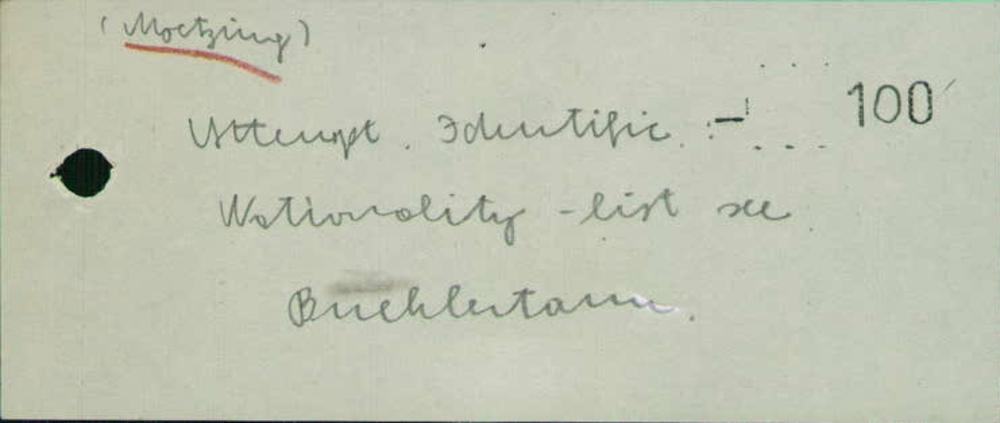 (Moetzing)
Attempt. Identific. :- 100
Nationality - list see
Buehlertann.